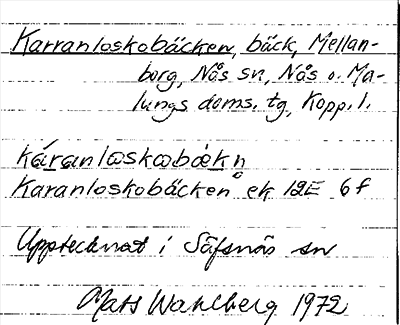 Karranloskobäcken, bäck, Mellan-
borg, Nås sn, Nås o. Ma-
lungs doms. tg, Kopp. l.
káranlɷskɷbækn̥
Karanloskobäcken ek 12E 6f
Upptecknat i Säfsnäs sn
Mats Wahlberg 1972